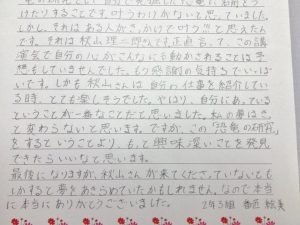 たりすることです。叶うわけがないと思っていました。
しかし、それはある人がきっかけで叶うと思えたん
です。それは秋山理二郎さんです。正直言って、この講
演会で自分の心がこんなにも動かされることは予
想もしていませんでした。もう感謝の気持ちでいっぱ
いです。しかも秋山さんは自分の仕事を紹介してい
る時、とても楽しそうでした。やはり、自分にあっている
ということが一番なことだと思いました。私の夢はきっ
と変わらないと思います。ですが、この「恐竜の研究」
をするということより、もっと興味深いことを発見
できたらいいなと思います。
最後になりますが、秋山さんが来てくださっていないとも
しかすると夢をあきらめていたかもしれません。なので本当
に本当にありがとうございました。
2年3組 絵美